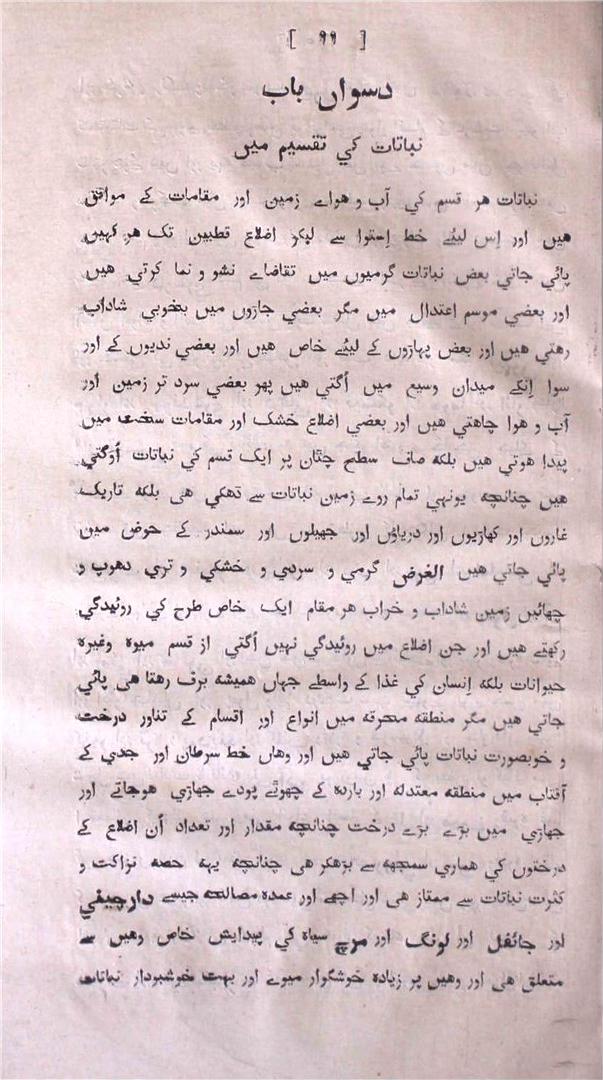 [ ٩٩ ]
دسواں باب
نباتات کي تقسیم میں
نباتات هر قسم کي آب و هواے زمین اور مقامات کے موافق
هیں اور اِس لیئے خط اِستوا سے لیکر اضلاع قطبین تک هر کہیں
پائي جاتي بعض نباتات گرمیوں میں تقاضاے نشو و نما کرتي هیں
اور بعضي موسم اعتدال میں مگر بعضي جاڑوں میں بخوبي شاداب
رهتي هیں اور بعض پہاڑوں کے لیئے خاص هیں اور بعضي ندیوں کے اور
سوا اِنکے میدان وسیع میں اُگتي هیں پھر بعضي سرد تر زمین اور
آب و هوا چاهتي هیں اور بعضي اضلاع خشک اور مقامات سخت میں
پیدا هوتي هیں بلکه صاف سطح چٹان پر ایک قسم کي نباتات اُوگتي
هیں چنانچه یونہي تمام روے زمین نباتات سے ڈھکي هی بلکه تاریک
غاروں اور کھاڑیوں اور دریاؤں اور جھیلوں اور سمندر کے حوض میں
پائي جاتي هیں الغرض گرمي و سردي و خشکي و تري دھوپ و
چھائیں زمین شاداب و خراب هر مقام ایک خاص طرح کي روئیدگي
رکھتے هیں اور جن اضلاع میں روئیدگي نہیں اُگتي از قسم میوہ وغیرہ
حیوانات بلکه اِنسان کي غذا کے واسطے جہاں همیشه برف رهتا هی پائي
جاتي هیں مگر منطقه محرقه میں انواع اور اقسام کے تناور درخت
و خوبصورت نباتات پائي جاتي هیں اور وهاں خط سرطان اور جدي کے
آفتاب میں منطقه معتدله اور باردہ کے چھوٹے پودے جھاڑي هوجاتے اور
جھاڑي میں بڑے بڑے درخت چنانچه مقدار اور تعداد اُن اضلاع کے
درختوں کي هماري سمجھه سے بڑھکر هی چنانچه یہه حصه نزاکت و
کثرت نباتات سے ممتاز هی اور اچھے اور عمدہ مصالحه جیسے دارچیني
اور جائفل اور لونگ اور مرچ سیاہ کي پیدایش خاص وهیں سے
متعلق هی اور وهیں پر زیادہ خوشگوار میوے اور بہت خوشبودار نباتات